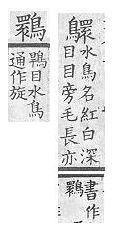 䴉
水鳥名紅白深
目目旁毛長亦
書作
目水鳥
通作旋